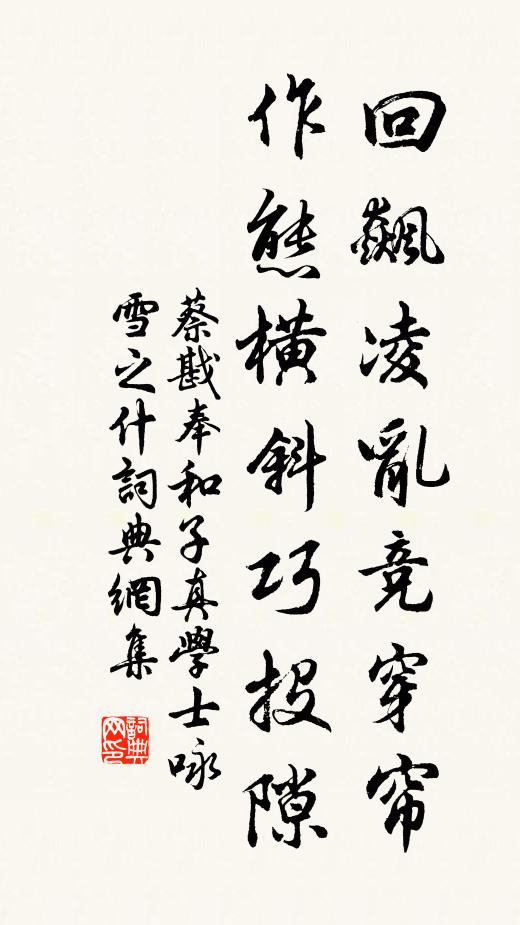 回飆凌亂竞穿帘
作態橫斜巧投隙
蔡戡奉和子真學士咏
雪之什詞典網集
詞典网印